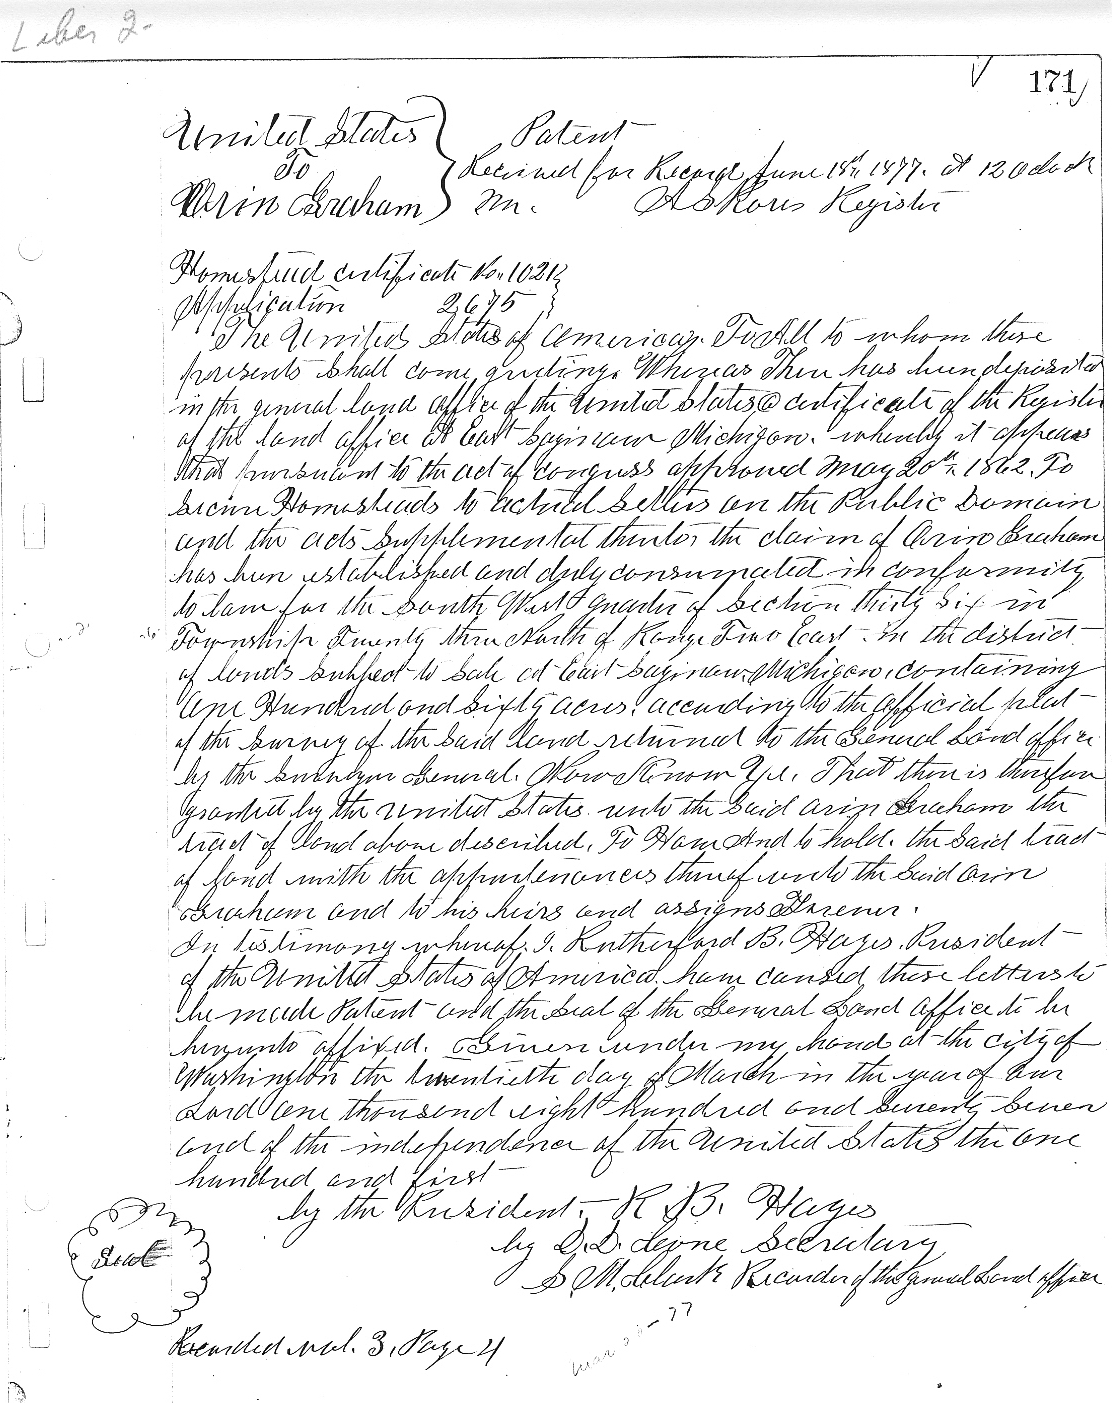 Liber 2-
171
United States
To
Orin Graham
Patent
Received for Record June 18th 1877. at 12 Oclock
M. Register
Homestead certificate No. 1021
Application 2675
The United States of America. To All to whom these
presents shall come, greeting. Whereas There has been deposited
in the general land office of the United States a certificate of the Register
of the land office at East Saginaw Michigan. whereby it appears
that pursuant to the act of congress approved May 20th. 1862. To
Secure Homesteads to actual Settlers on the Public Domain
and the acts Supplemental thereto, the claim of Orin Graham
has been established and duly consumated in conformity
to law for the South West quarter of Section thirty Six in
Township Twenty three North of Range Two East in the district
of lands Subject to Sale at East Saginaw. Michigan, containing
One Hundred and Sixty acres. according to the official plat
of the Survey of the Said land returned to the General Land office
by the Surveyor General. Now Know Ye. That there is therefore
granted by the United States unto the Said Orin Graham the
tract of land above described. To Have And to hold. the Said tract
of land with the appurtenances thereof unto the Said Orin
Graham and to his heirs and assigns Forever.
In testimony whereof. I. Rutherford B. Hayes. President
of the United States of America. have caused these letters to
be made Patent and the Seal of the General Land office to be
hereunto affixed. Given under my hand at the city of
Washington the twentieth day of March in the year of Our
Lord One thousand eight hundred and Seventy Seven
and of the independence of the United States the One
hundred and first
by the President. R. B. Hayes
by D. D. Secretary
Seal
S M. Clark Recorder of the general Land office
Recorded vol. 3, Page 4
Mar 20-77